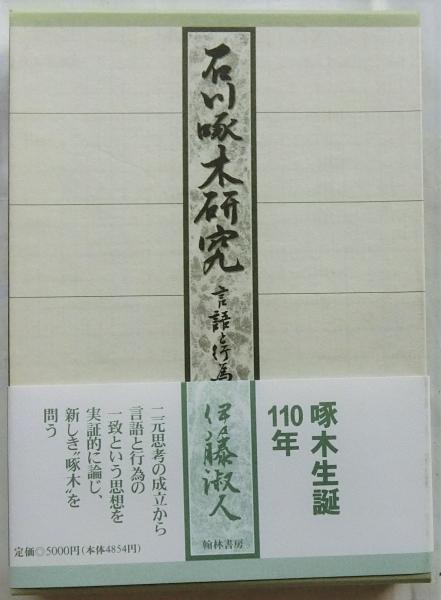 石川啄木研究
言語と行為
伊藤淑人
翰林書房
啄木生誕
110年
二元思考の成立から
言語と行為の
一致という思想を
実証的に論じ、
新しき“啄木”を
問う
定価◎5000円(本体4854円)